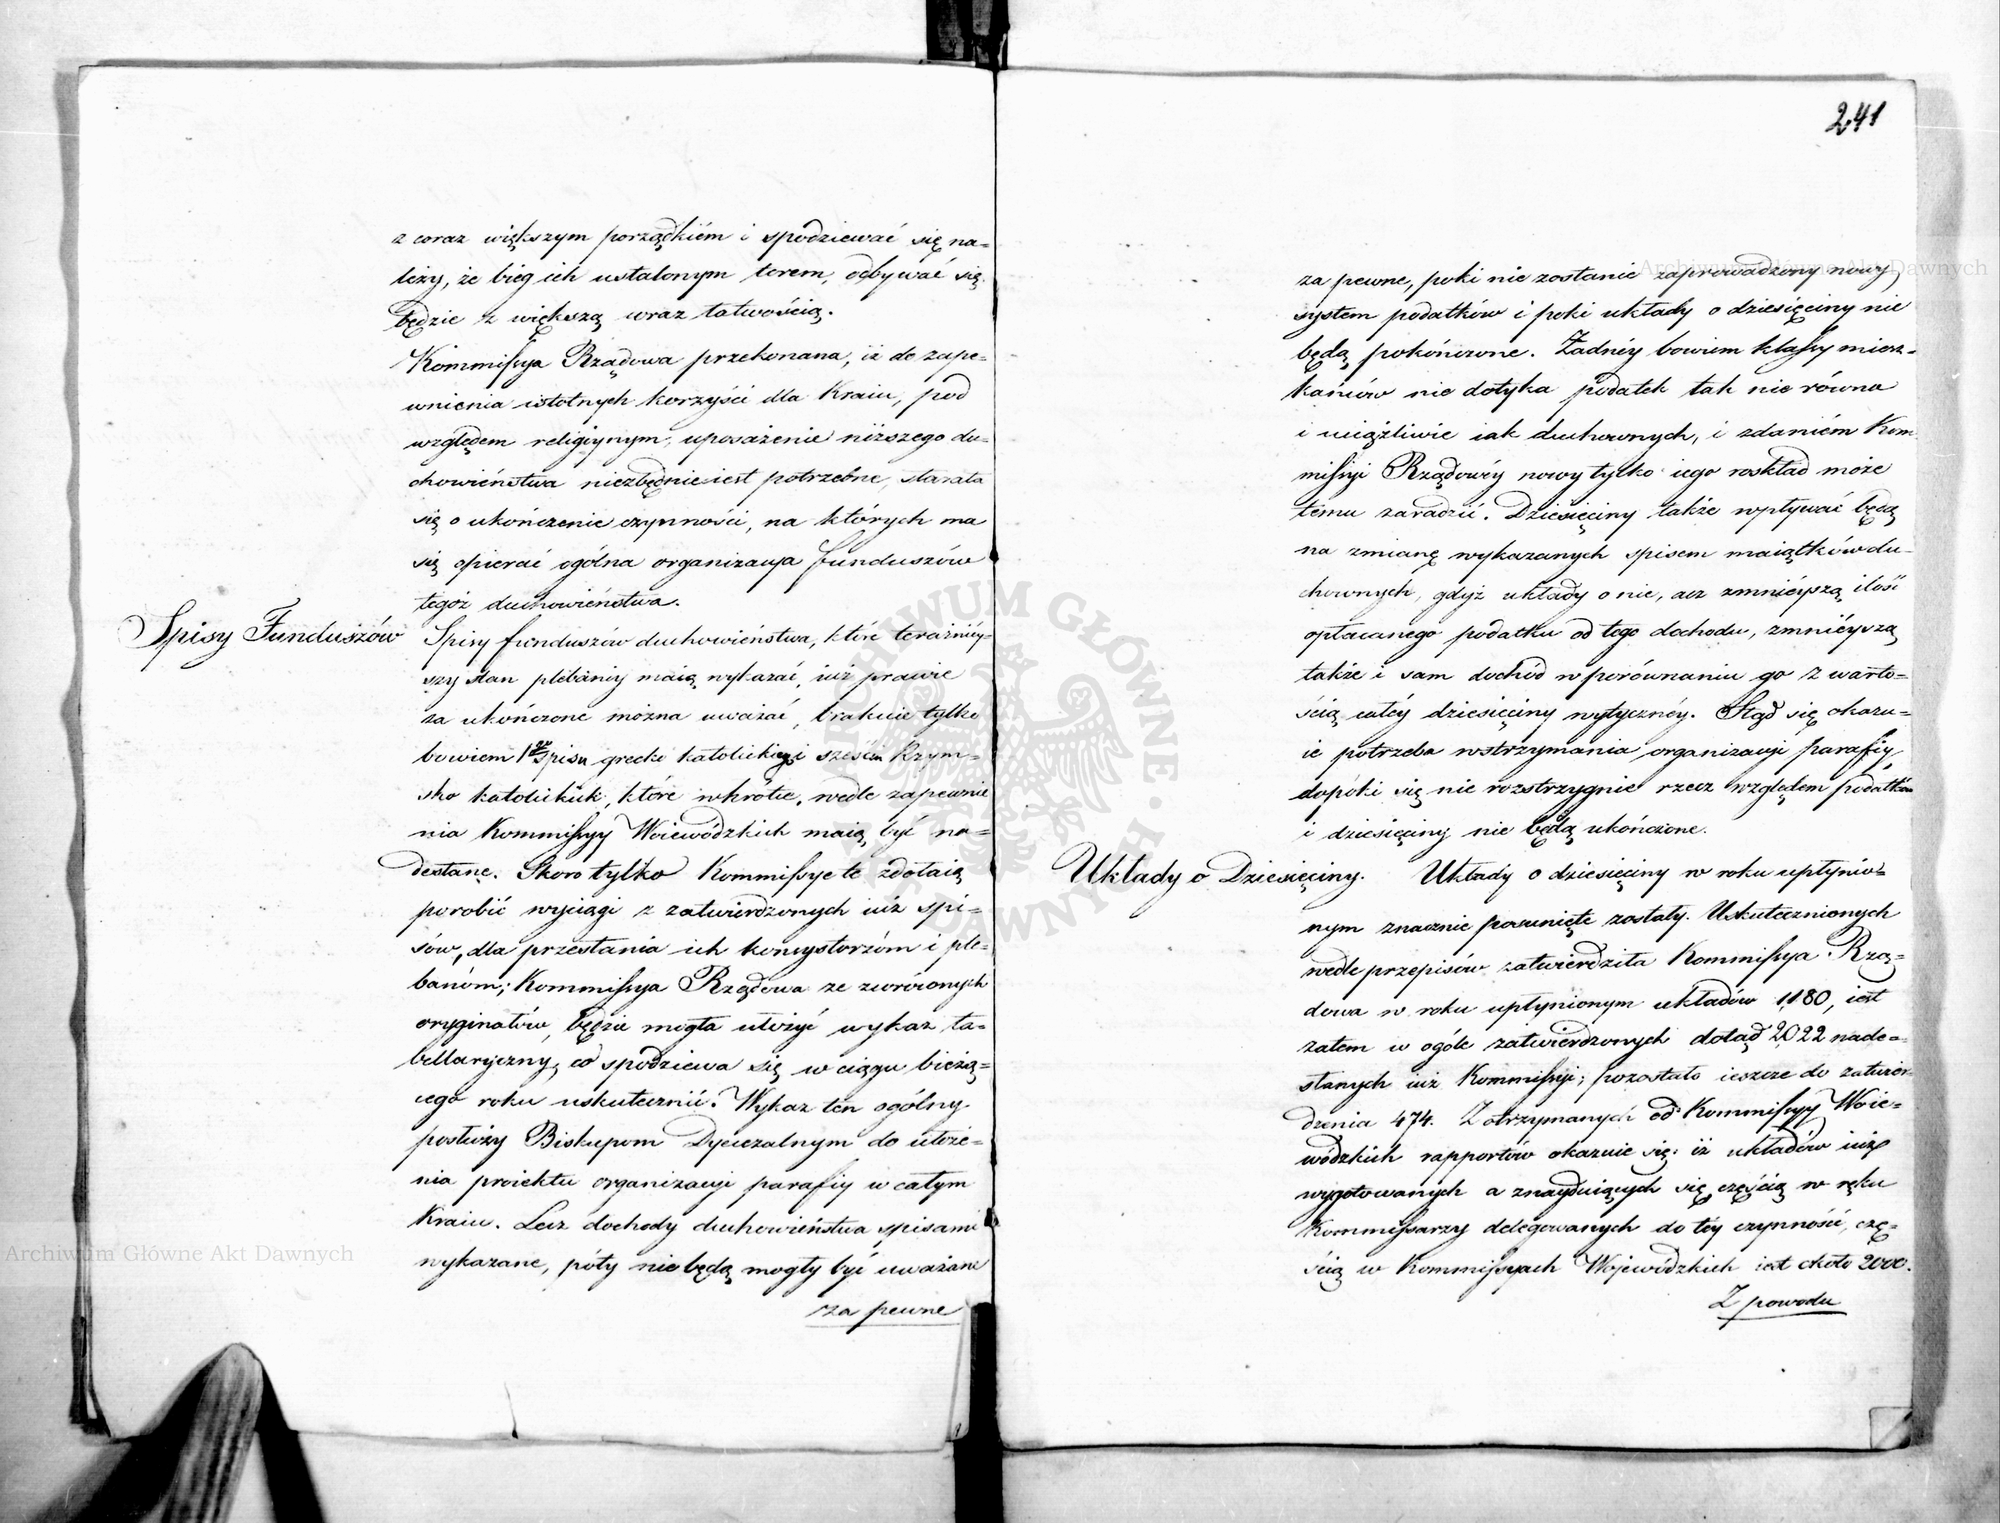 z coraz większym porządkiém i spodziewać się na=
leży, że bieg ich ustalonym torem, odbywać się
będzie z większą wraz łatwością.
Kommissya Rządowa przekonana, iż do zape=
wnienia istotnych korzyści dla Kraiu, pod
względem religiynym, uposażenie niższego du=
chowieństwa niezbędnie iest potrzebne, starała
się o ukończenie czynności, na których ma
się opierać ogólna organizacya funduszów
tegoż duchowieństwa.
Spisy Funduszów
Spisy funduszów duchowieństwa, które teraźniéy=
szy stan plebániy maią wykazać, iuż prawie
za ukończone można uważać, brakuie tylko
bowiem 1go spisu grecko katolickiego i sześciu Rzym=
sko katolickich, które wkrótce, wedle zapewnie
nia Kommissyy Woiewódzkich maią być na=
desłane. Skoro tylko Kommissye te zdołaią
porobić wyciągi z zatwierdzonych iuż spi=
sów, dla przesłania ich konsystorzóm i ple=
banóm; Kommissya Rządowa ze zwróconych
oryginałów, będzie mogła ułożyć wykaz ta=
bellaryczny, co spodziewa się w ciągu bieżą=
cego roku uskutecznić. Wykaz ten ogólny
posłuży Biskupom Dyecezalnym do ułoże=
nia proiektu organizacyi parafiy w całym
Kraiu. Lecz dochody duchowieństwa spisami
wykazane, póty nie będą mogły być uważane
za pewne
241
za pewne, poki nie zostanie zaprowadzony nowy
system podatków i poki układy o dziesięciny nie
będą pokończone. Żadnéy bowiem klassy miesz=
kańców nie dotyka podatek tak nie równo
i uciążliwie iak duchownych, i zdaniém Kom
missyi Rządowéy nowy tylko iego rozkład może
temu zaradzić. Dziesięciny także wpływać będą
na zmianę wykazanych spisem maiątków du=
chownych, gdyż układy o nie, acz zmnieyszą ilość
opłacanego podatku od tego dochodu, zmnieyszą
także i sam dochód w porównaniu go z warto=
ścią całéy dziesięciny wytycznéy. Stąd się okazu=
ie potrzeba wstrzymania organizacyi parafiy,
dopóki się nie rozstrzygnie rzecz względem podatków
i dziesięciny nie będą ukończone.
Układy o Dziesięciny.
Układy o dziesięciny w roku upłynio=
nym znacznie posunięte zostały. Uskutecznionych
wedle przepisów zatwierdziła Kommissya Rzą=
dowa w roku upłynionym układów 1180, iest
zatem w ogóle zatwierdzonych dotąd 2022 nade=
słanych iuż Kommissyi; pozostało ieszcze do zatwier
dzenia 474. Z otrzymanych od Kommissyy Woie=
wódzkich rapportów okazuie się: iż układów iuż
wygotowanych a znayduiących się częścią w ręku
Kommissarzy delegowanych do téy czynności, czę=
ścią w Kommissyach Wojewódzkich iest około 2000.
Z powodu
Archiwum Główne Akt Dawnych
Archiwum Główne Akt Dawnych
ARCHIWUM GŁÓWNE AKT DAWNYCH